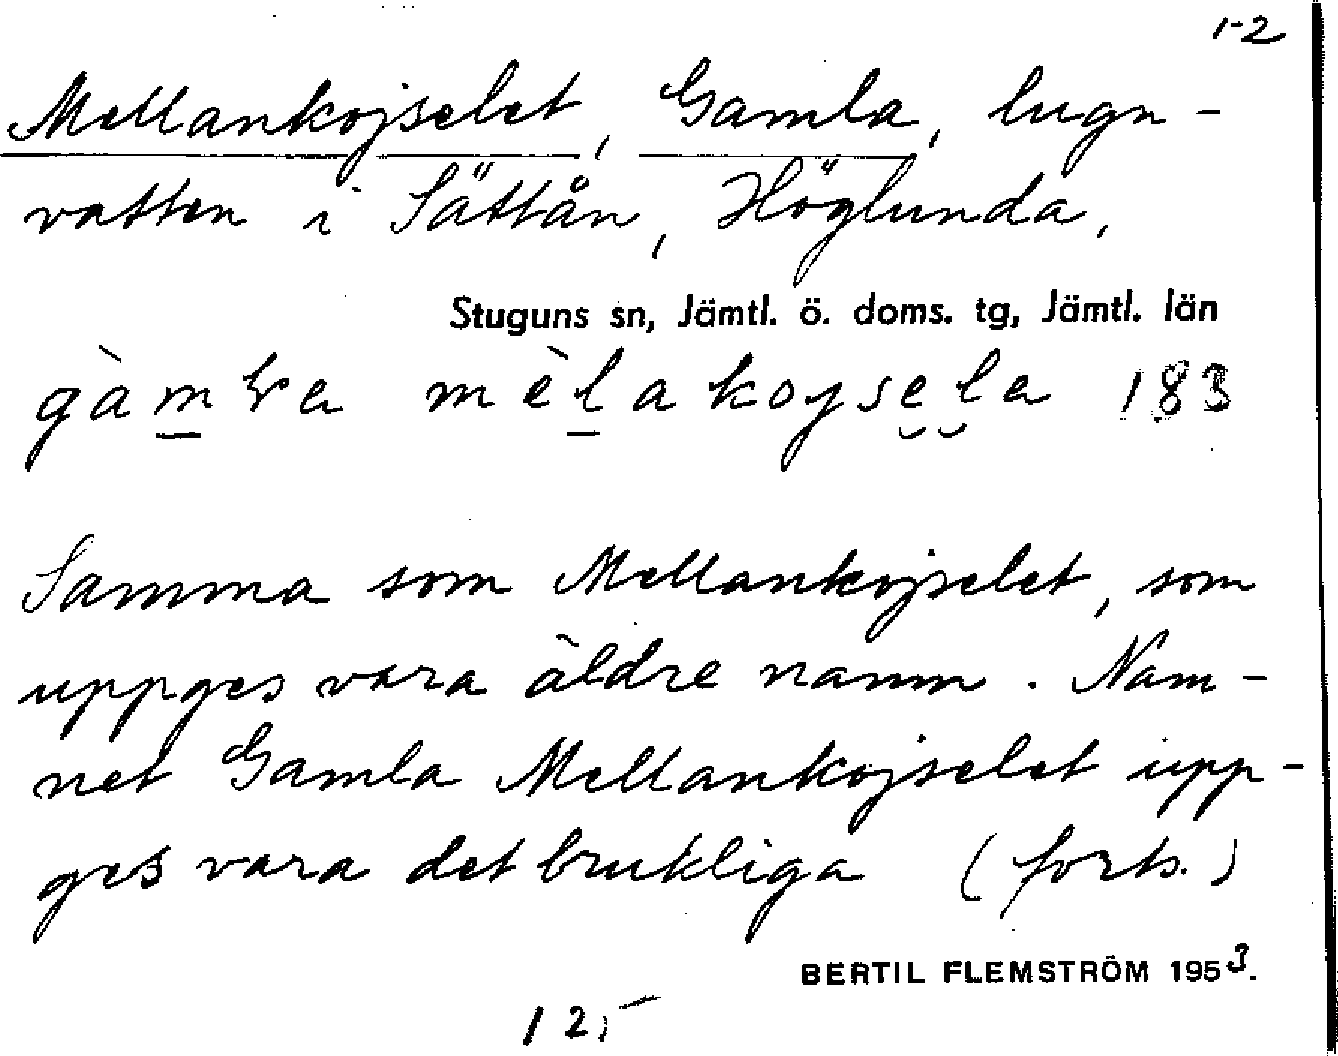 1-2
Mellankojselet, Gamla, lugn-
vatten i Sättån, Höglunda,
Stuguns sn, Jämtl. ö. doms. tg, Jämtl. län
gàmla mèlakojsela 183
Samma som Mellankojselet, som
uppges vara äldre namn. Nam-
net Gamla Mellankojselet upp-
ges vara det brukliga (forts.)
BERTIL FLEMSTRÖM 1953.